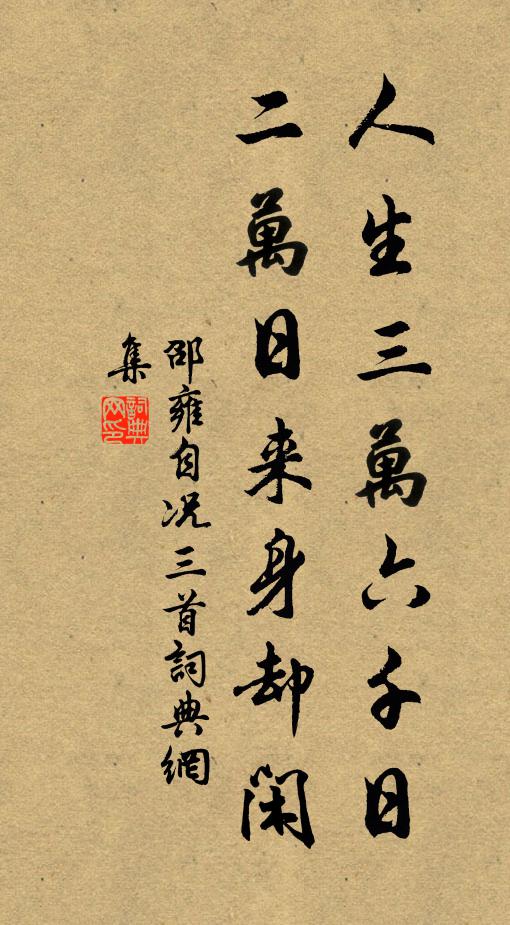 人生三萬六千日
二萬日来身却閑
邵雍自况三首詞典網
集
詞典
网印